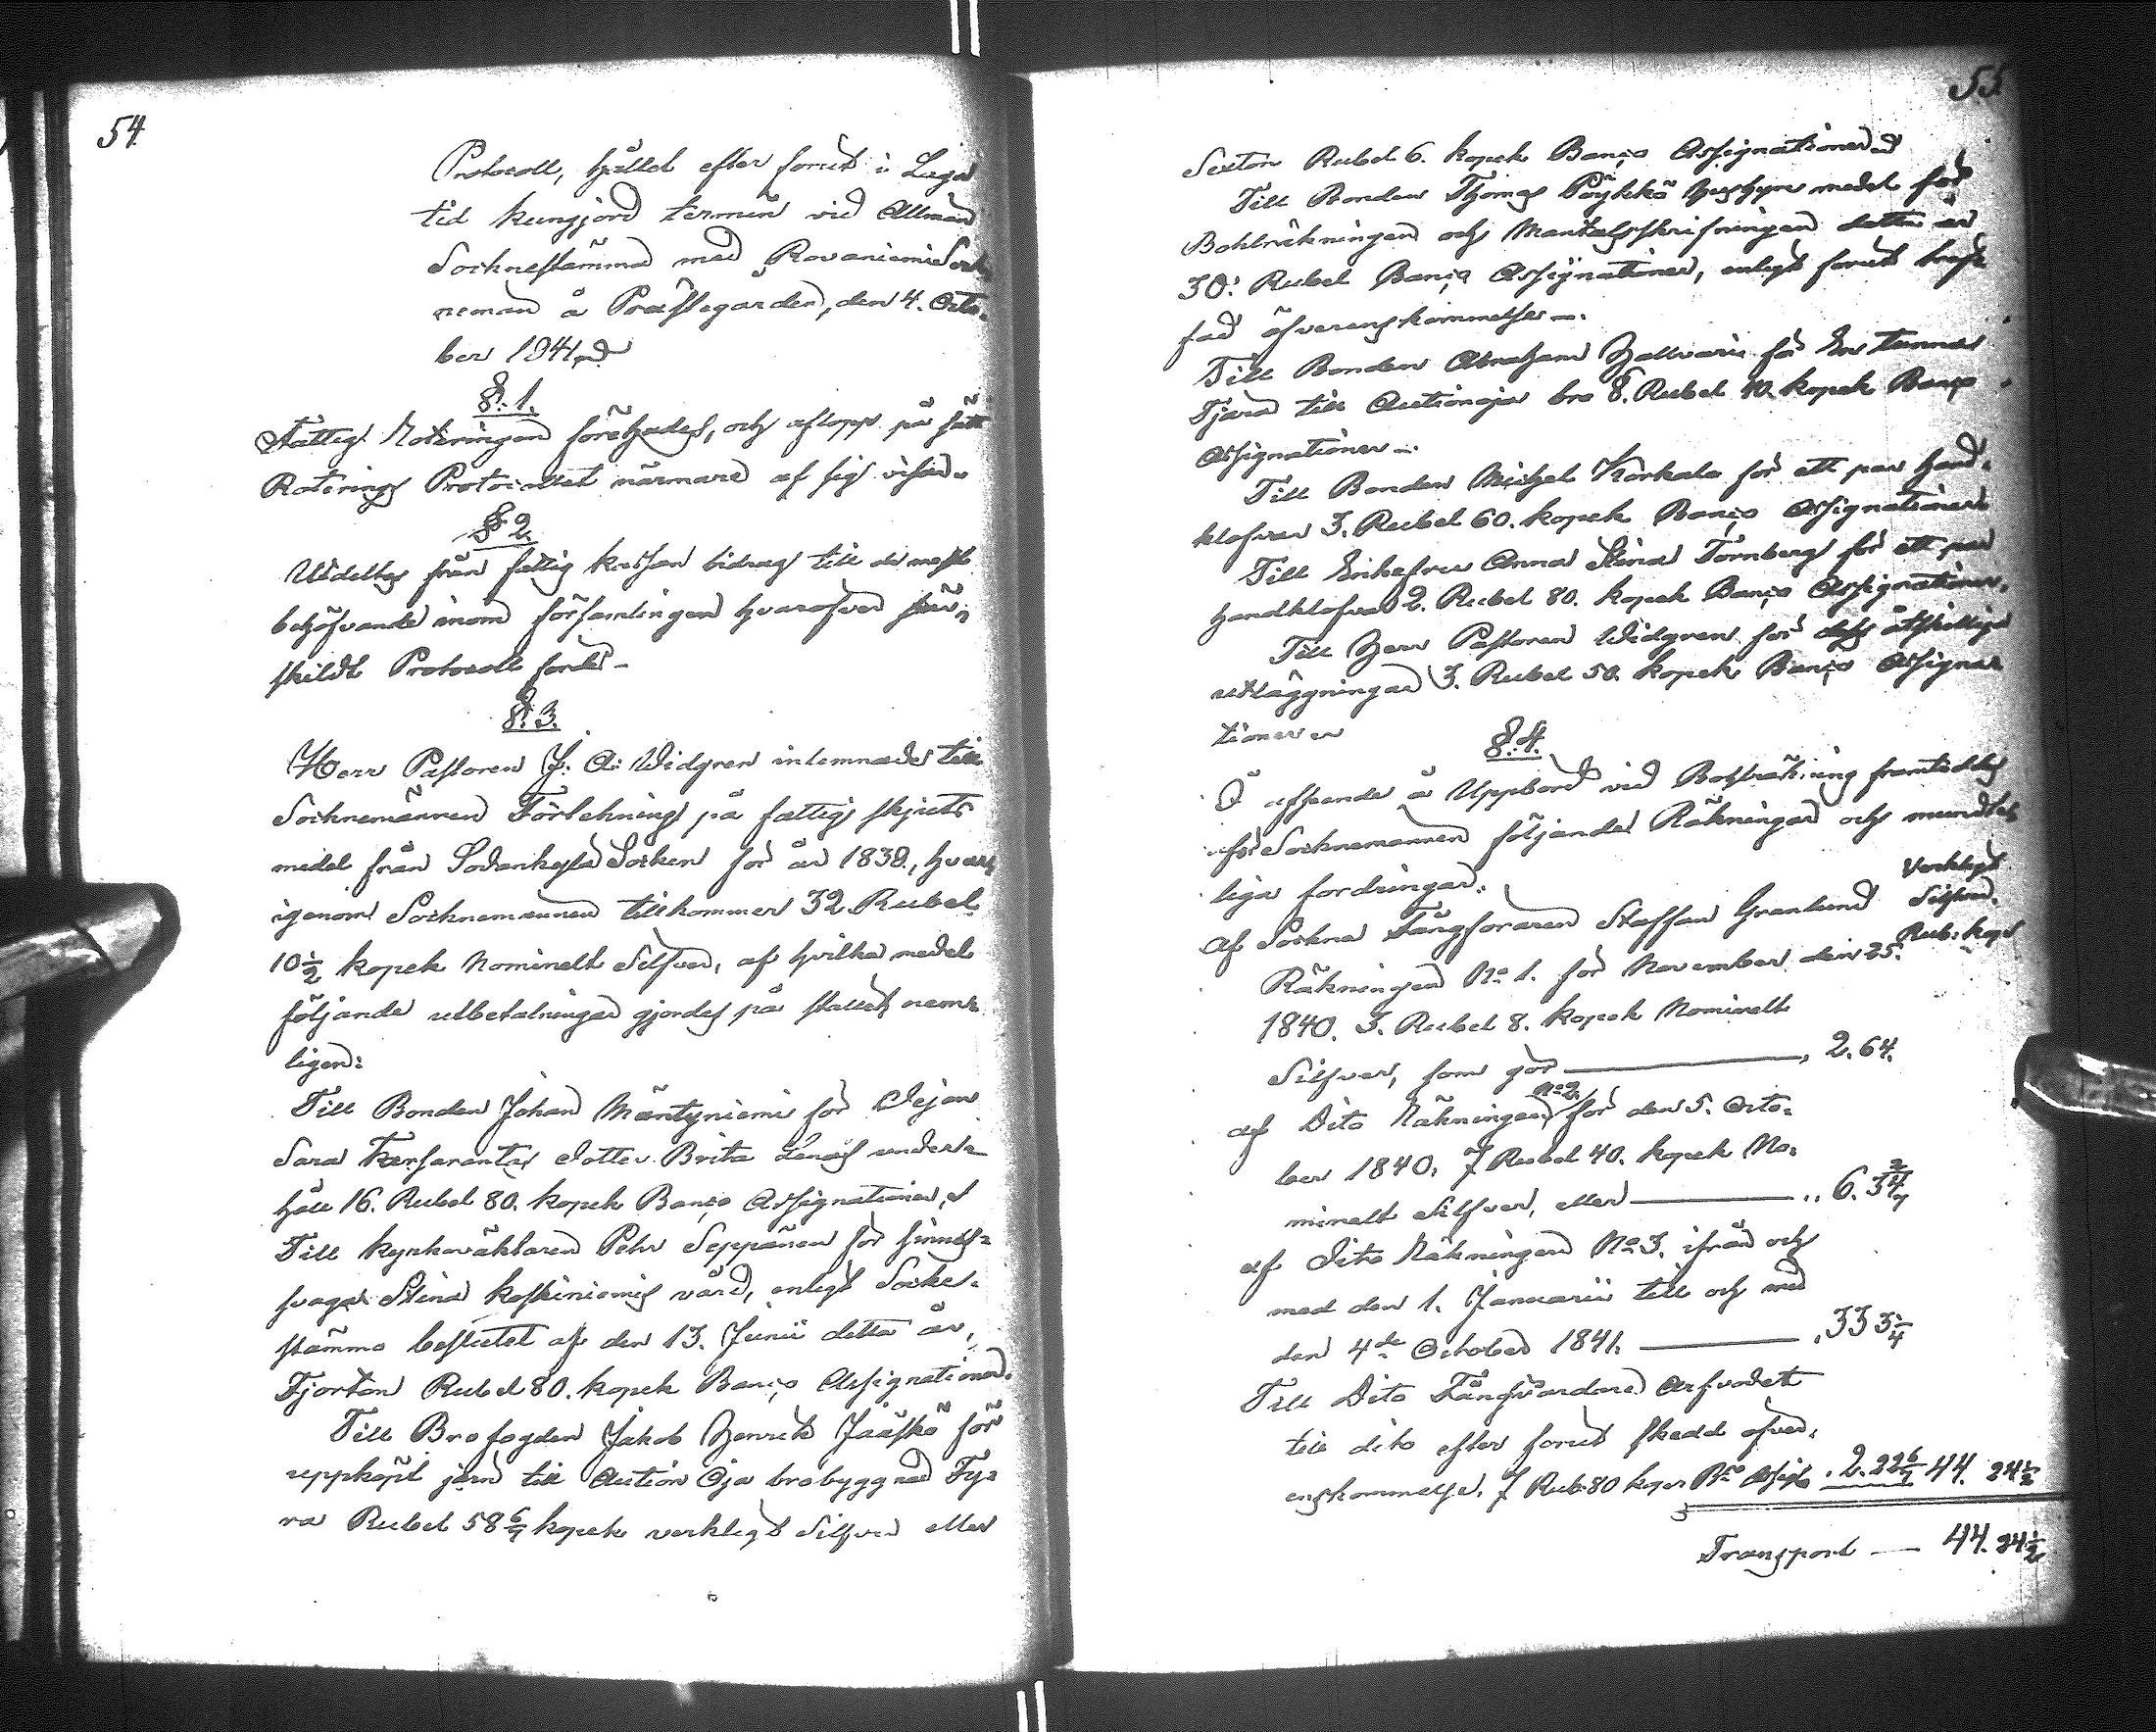 54
Protocoll, hållet efter förut i Laga
tid kungjord termin vid Allmän
Socknestämma med Rovaniemi Sock
neman å Præstegården, den 4. Octo-
ber 1841.
§. 1.
Fattig Roteringen företogs, och aflopp på sätt
Roterings Protocollet närmare af sig visar.
§ 2.
Utdeltes från fattig kassan bidrag till de mest
behöfvande inom församlingen hvaröfver sär-
skildt Protocoll fördes -
§. 3.
Herr Pastoren J: A: Widgren inlemnade till
Socknemännen Förtekning på fattig skjuts
medel från Sodankylä Socken för år 1838., hvar
igenom Socknemännen tillkommer 32 Rubel
10 1/2 kopek Nominelt Silfver, af hvilka medel
följande utbetalningar gjordes på stället, nem-
ligen:
Till Bonden Johan Mäntyniemi för Pejan
Sara Karsarantas dotter Brita Lenas under-
håll 16. Rubel 80. kopek Banco Assignationer,
Till kyrkoväktaren Pehr Seppänen för sinnes-
svaga Stina Koskiniemis vård, enligt Socke-
stämmo beslutet af den 13. Junii detta år,
Fjorton Rubel 80. kopek Banco Assignationer.
Till Brofogden Jakob Henrik Jääskö för
uppköpt jern till Aution Oja brobyggnad Fy-
ra Rubel 58 6/7 kopek verkligt Silfver eller
55
Sexton Rubel 6. kopek Banco Assignationer
Till Bonden Thomas Pöykkö Hushyre medel för
Bohlräkningen och Mantalsskrifningen detta år
30: Rubel Banco Assignationer, enligt förut träf-
fad öfverenskommelse -.
Till Bonden Abraham Hallvari för En Tunna
Tjära till Autionoja bro 8. Rubel 40. kopek Banco
Assignationer -.
Till Bonden Michel Korkalo för ett par hand-
klofvar 3. Rubel 60. kopek Banco Assignationer
Till Enkefru Anna Stina Törnberg för ett par
handklofvar 2. Rubel 80. kopek Banco Assignationer,
Till Herr Pastoren Widgren för dess åtskilliga
utläggningar 3. Rubel 50. kopek Banco Assigna
tioner
§. 4.
I afseende å Uppbörd vid Bohlräkning framteddes
för Socknemännen följande Räkningar och mundte-
liga fordringar.
Verkligt
Silfver.
Rub: kop
af Sockne Fångforaren Staffan Granlund
Räkningen No 1. för November den 25.
1840. 3. Rubel 8. kopek Nominelt
Silfver, som gör 2. 64.
af Dito Räkningen No 2. för den 5. Octo-
ber 1840. 7 Rubel 40. kopek No-
minelt Silfver, eller 6. 34 2/7
af Dito Räkningen No 3. ifrån och
med den 1. Januarii till och med
den 4de October 1841. 33 3 1/4
Till Dito Fångförare Arfvodet
till dito efter förut skedd öfver-
enskommelse. 7 Rub: 80 kop: Bco Assigt 2. 22 6/7 44. 24 1/2
Transport — 44. 24 1/2